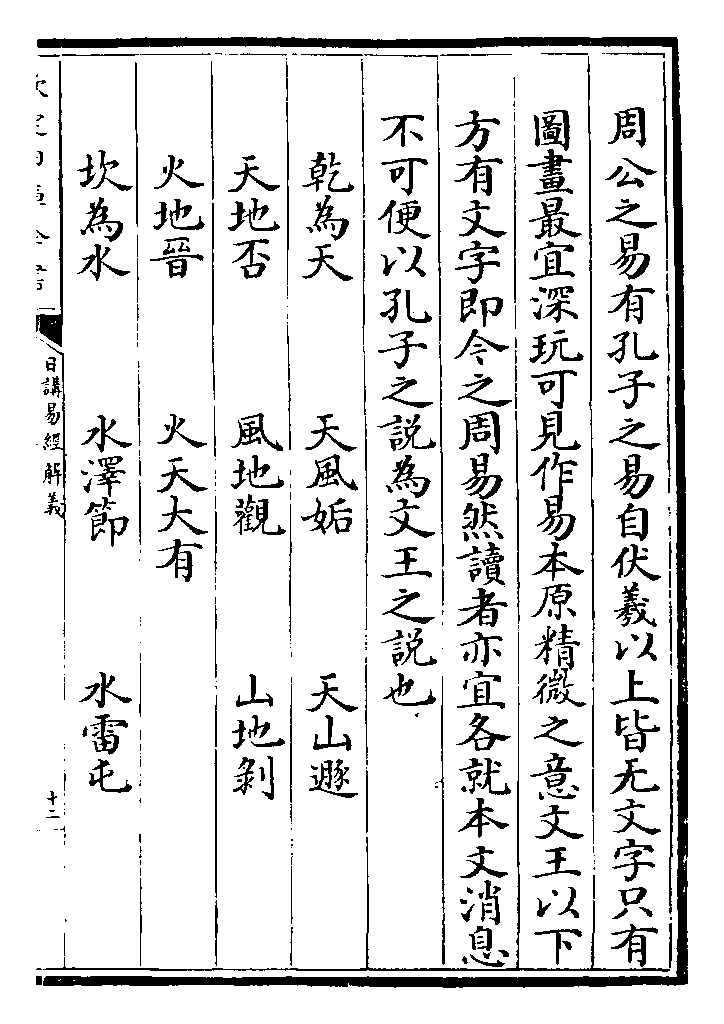 周公之易有孔子之易自伏羲以上皆无文字只有
圖畫最宜深玩可見作易本原精微之意文王以下
方有文字即今之周易然讀者亦宜各就本文消息
不可便以孔子之說為文王之說也
乾為天　天風姤　天山遯
天地否　風地觀　山地剝
火地晉　火天大有
坎為水　水澤節　水雷屯
日講易經解義
十二